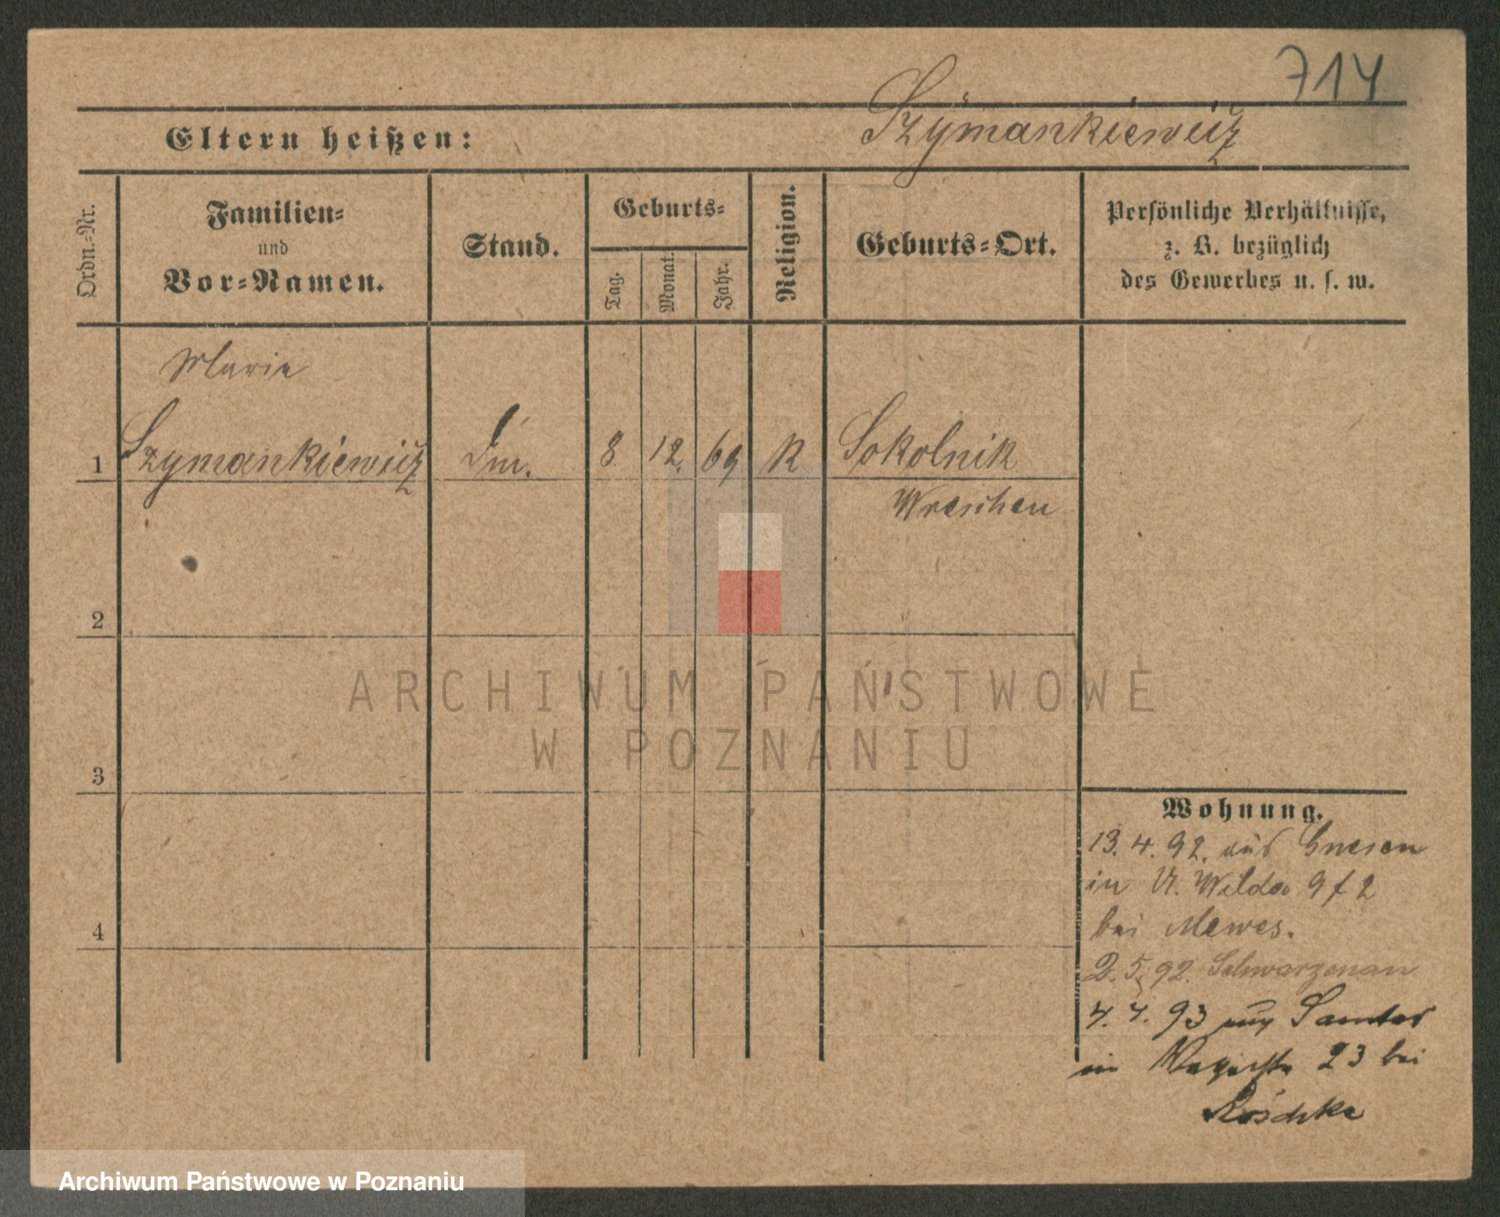 714
Szymankiewicz
Eltern heißen:
Ordn.-Nr.
Familien-
und
Vor-Namen.
Stand.
Geburts-
Tag.
Monat.
Jahr.
Religion.
Geburts-Ort.
Persönliche Verhältnisse,
z. B. bezüglich
des Gewerbes u. s. w.
Marie
1 Szymankiewicz 8 12. 69 K Sokolnik
Wreschen
2
3
4
ARCHIWUM PAŃSTWOWE
W POZNANIU
Wohnung.
13. 4. 92. aus Gnesen
in U. Wilda 9 f 2
bei Mewes.
2. 5. 92. Schwarzenau
4. 4. 93 aus Samter
in 23 bei
Röschke
Archiwum Państwowe w Poznaniu